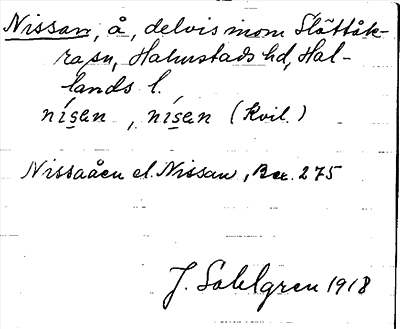 Nissan, å, delvis inom Slättåk-
ra sn, Halmstads hd, Hal-
lands l.
nísen, nísen (Kvil.)
Nissaåen el. Nissan, Ber. 275
J. Sahlgren 1918